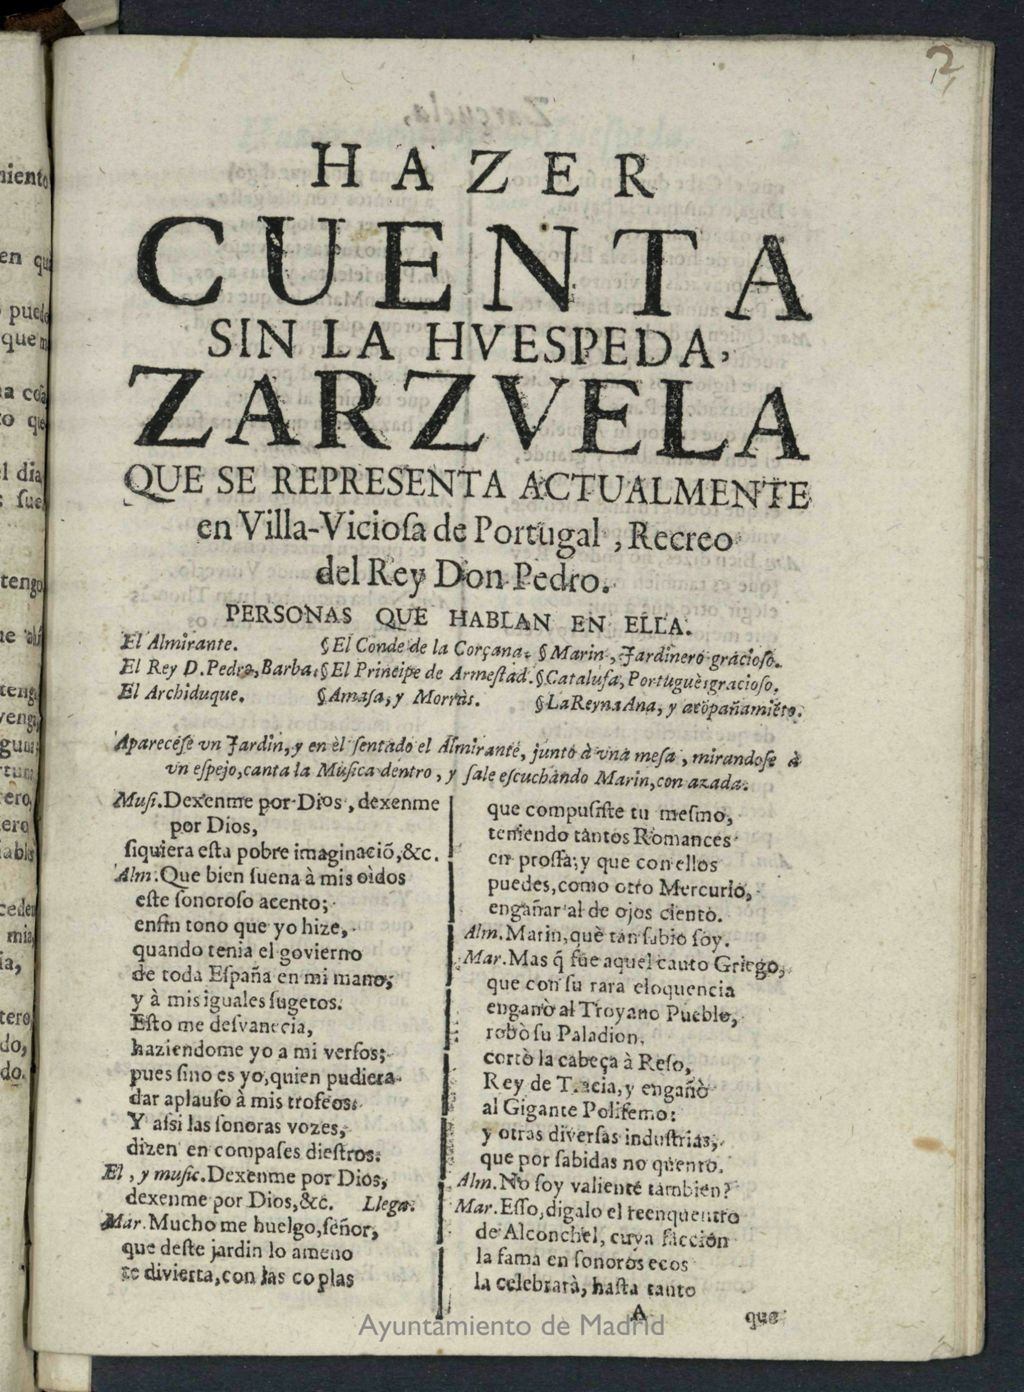 2
HAZER
CUENTA
SIN LA HVESPEDA,
ZARZVELA
QUE SE REPRESENTA ACTUALMENTE
en Villa-Viciosa de Portugal, Recreo
del Rey Don Pedro.
PERSONAS QUE HABLAN EN ELLA.
El Almirante. §El Conde de la Corçana. §Marin, Jardinero gracioso.
El Rey D. Pedro, Barba. §El Principe de Armestad. §Catalusa, Portuguès gracioso.
El Archiduque. §Amasa, y Morràs. §La Reyna Ana, y acōpañamiēto.
Aparecese vn Jardin, y en èl sentado el Almirante, junto à vna mesa, mirandose à
vn espejo, canta la Musica dentro, y sale escuchando Marin, con azada.
Musi. Dexenme por Dios, dexenme
por Dios,
siquiera esta pobre imaginaciō, &c.
Alm. Que bien suena à mis oìdos
este sonoroso acento;
enfin tono que yo hize,
quando tenia el govierno
de toda España en mi mano,
y à mis iguales sugetos.
Esto me desvanecia,
haziendome yo a mi versos;
pues sino es yo, quien pudiera
dar aplauso à mis trofeos.
Y assi las sonoras vozes,
dizen en compases diestros.
El, y music. Dexenme por Dios,
dexenme por Dios, &c. Llega.
Mar. Mucho me huelgo, señor,
que deste jardin lo ameno
te divierta, con las coplas
que compusiste tu mesmo,
teniendo tantos Romances
en prossa; y que con ellos
puedes, como otro Mercurio,
engañar al de ojos ciento.
Alm. Marin, què tan sabio soy.
Mar. Mas q̃ fue aquel cauto Griego,
que con su rara eloquencia
enganò al Troyano Pueblo,
robò su Paladion,
cortò la cabeça à Reso,
Rey de Tracia, y engañò
al Gigante Polifemo:
y otras diversas industrias,
que por sabidas no quento.
Alm. No soy valiente tambien?
Mar. Esso, digalo el reenquentro
de Alconchel, cuya faccion
la fama en sonoros ecos
la celebrarà, hasta tanto
A que
Ayuntamiento de Madrid